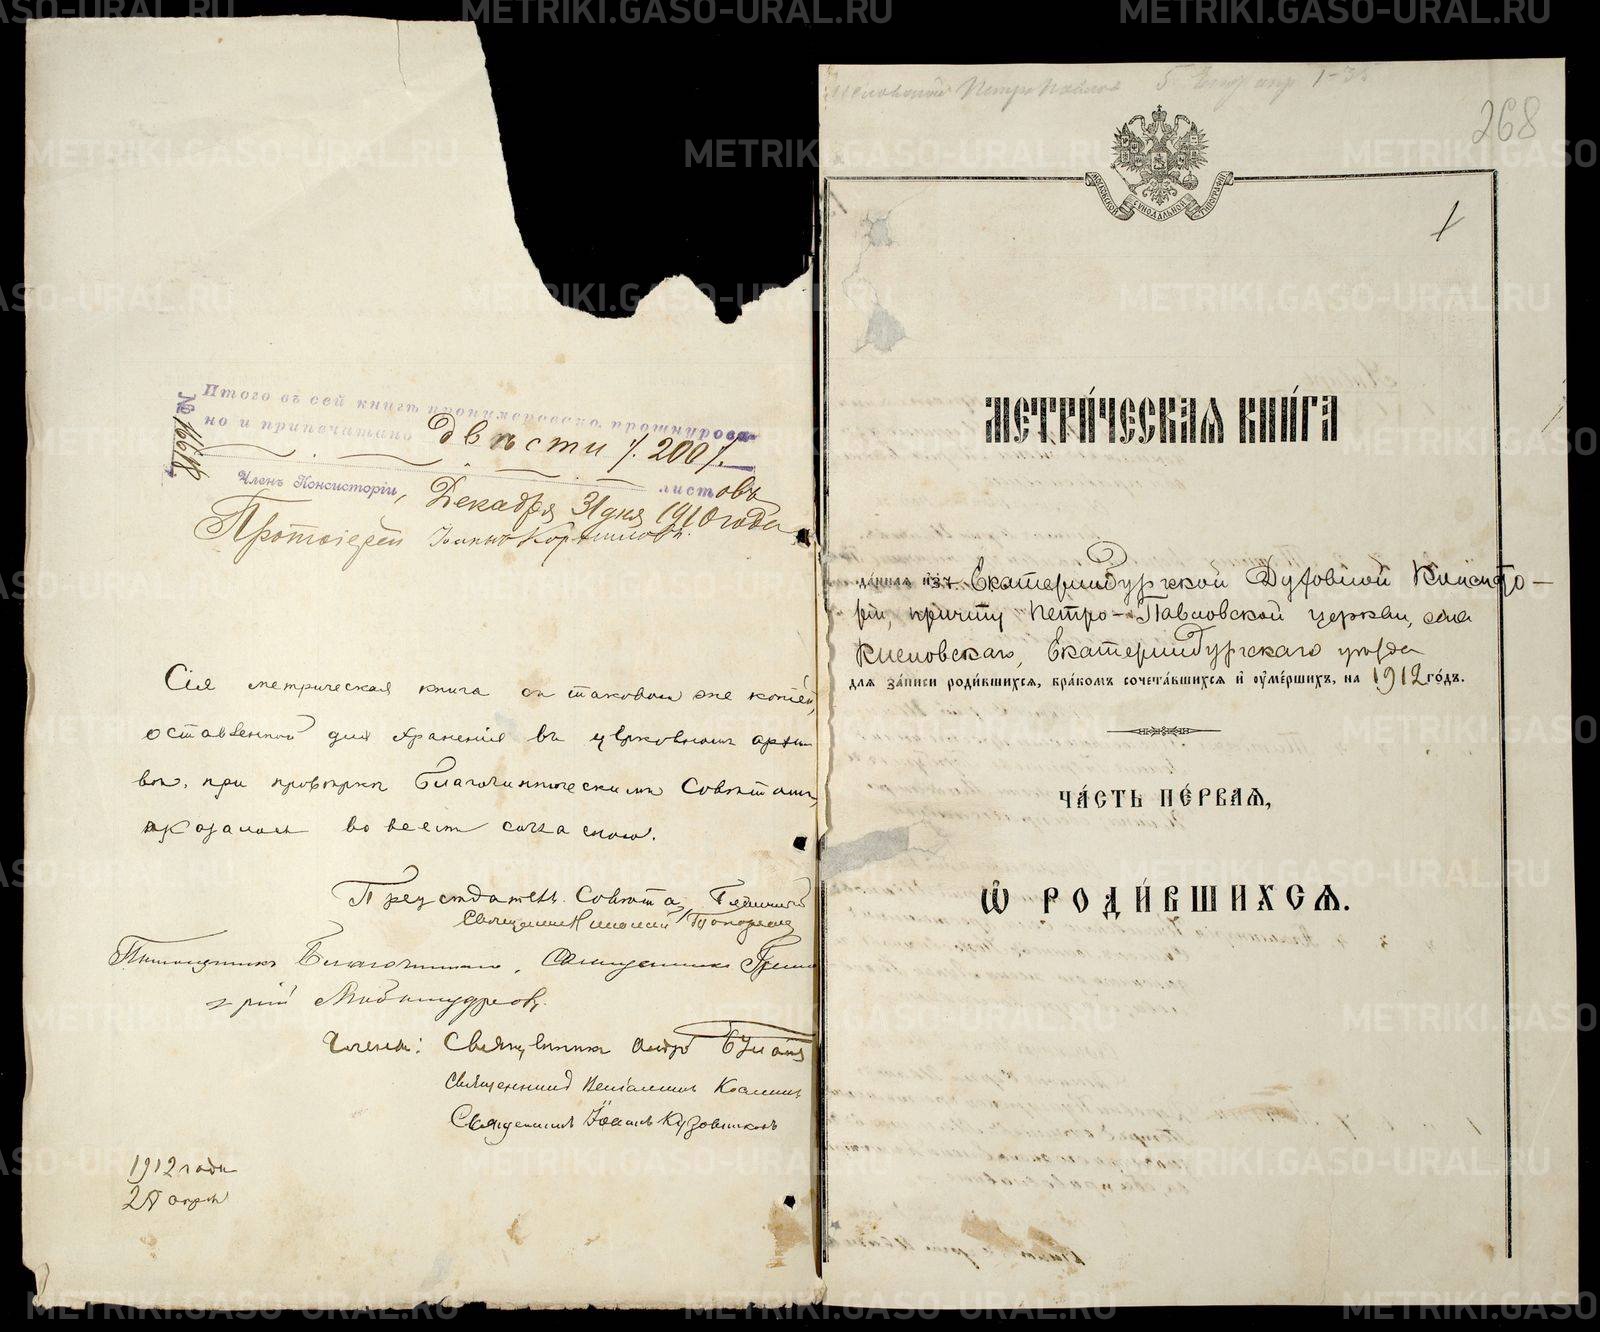 Итого въ сей книгѣ пронумеровано, прошнурова-
но и припечатано Двѣсти /.200/.
листовъ
№ 16618
Членъ Консисторіи, Декабря 31 дня 1910 года
Протоіерей Іоаннъ Корнилов
Сія метрическая книга съ таковою же копіею,
оставленной для храненія въ церковномъ архи
вѣ, при провѣркѣ Благочинническимъ Совѣтомъ,
оказалась во всем согласною.
Предсѣдатель Совѣта, Благочинный
Священникъ Николай Топорковъ
Помощникъ Благочиннаго, Священникъ Григо
рій
Члены: Священникъ
Священникъ Веніаминъ
Священникъ Іоаннъ Кузовниковъ
1912 года
Петро Павлов 5
268
МОСКОВСКОЙ СѴНОДАЛЬНОЙ ТИПОГРАФІИ
1
МЕТРИ́ЧЕСКАЯ КНИ́ГА
да́нная изъ Екатеринбургской Духовной Консисто-
ріи, причту Петро-Павловской церкви, села
Кисловскаго, Екатеринбургскаго уѣзда
для за́писи роди́вшихся, бра́комъ сочета́вшихся и҆ ᲂу҆ме́ршихъ, на 1912 го́дъ.
ЧА́СТЬ ПЕ́РВАЯ,
Ѡ҆ РОДИ́ВШИХСЯ.
METRIKI.GASO-URAL.RU